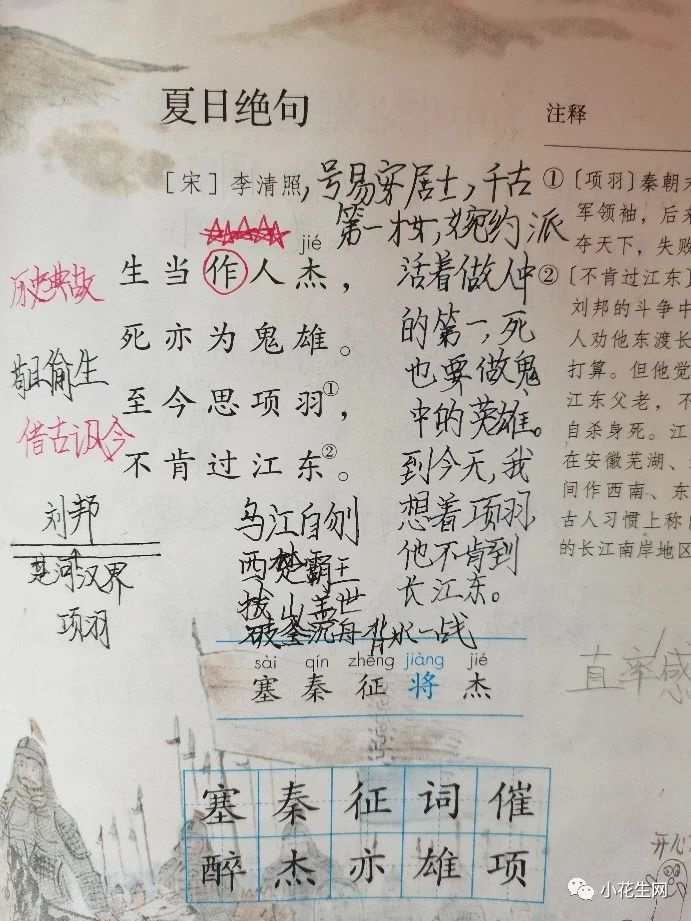 夏日绝句
注释
［宋］李清照，号易穿居士，千古
第一才女，婉约派
jié
生当作人杰，
死亦为鬼雄。
至今思项羽①，
不肯过江东②。
历史典故
苟且偷生
借古讽今
刘邦
楚河汉界
项羽
活着做人中
的第一，死
也要做鬼
中的英雄。
到今天，我
想着项羽，
他不肯到
长江东。
乌江自刎
西楚霸王
拔山盖世
破釜沉舟 背水一战
①［项羽］秦朝末
军领袖，后来
夺天下，失败
②［不肯过江东］
刘邦的斗争中
人劝他东渡长
打算。但他觉
江东父老，不
自杀身死。江
在安徽芜湖、
间作西南、东
古人习惯上称
的长江南岸地区
sài qín zhēng jiàng jié
塞 秦 征 将 杰
直率感
塞 秦 征 词 催
醉 杰 亦 雄 项
开心
小花生网